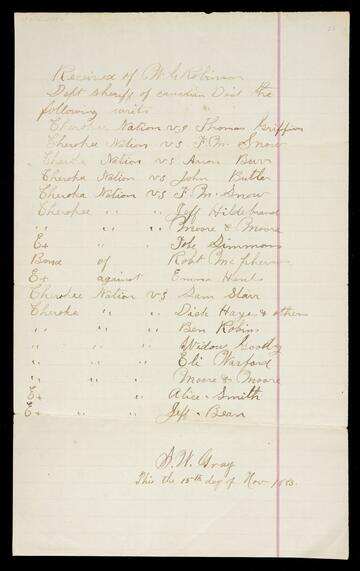 Received of W. G. Robinson
Dept Sheriff of Canadian Dist the
following writs
Cherokee Nation vs Thomas Griffin
Cherokee Nation vs F. M. Snow
Cheroke Nation vs Aaron Burr
Cheroke Nation vs John Butler
Cheroke Nation vs F. M. Snow
Cherokee " " Jeff Hildebrand
" " " Moore & Moore
Ex " " Tobe Simmons
Bond of Robt McPherson
Ex against Emma Hanks
Cherokee Nation vs Sam Starr
Cheroke " " Dick Hays & others
" " " Ben Robins
" " " Widow Goody
" " " Eli Warford
" " " Moore & Moore
Ex " " Alice Smith
Ex " " Jeff Bean
S. W. Gray
This the 15th day of Nov 1883.